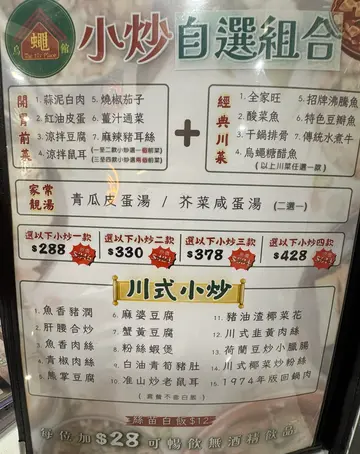 烏 蠅 館
小炒自選組合
開胃前菜
1. 蒜泥白肉
2. 紅油皮蛋
3. 涼拌豆腐
4. 涼拌鼠耳
5. 燒椒茄子
6. 薑汁通菜
7. 麻辣豬耳絲
+
經典川菜
1. 全家旺
2. 酸菜魚
3. 干鍋排骨
4. 烏蠅糖醋魚
5. 招牌沸騰魚
6. 特色豆瓣魚
7. 傳統水煮牛
(以上川菜任選一款)
家常靚湯
青瓜皮蛋湯 / 芥菜咸蛋湯 (二選一)
選以下小炒一款
$288
選以下小炒二款
$330
選以下小炒三款
$378
選以下小炒四款
$428
川式小炒
1. 魚香豬潤
2. 肝腰合炒
3. 魚香肉絲
4. 青椒肉絲
5. 熊掌豆腐
6. 麻婆豆腐
7. 蟹黃豆腐
8. 粉絲蝦煲
9. 白油青筍豬肚
10. 准山炒老鼠耳
11. 豬油渣椰菜花
12. 川式韭黃肉絲
13. 荷蘭豆炒小臘腸
14. 川式椰菜炒粉絲
15. 1974年版回鍋肉
(套餐不包白飯)
絲苗白飯$12
每位加$28可暢飲無酒精飲品